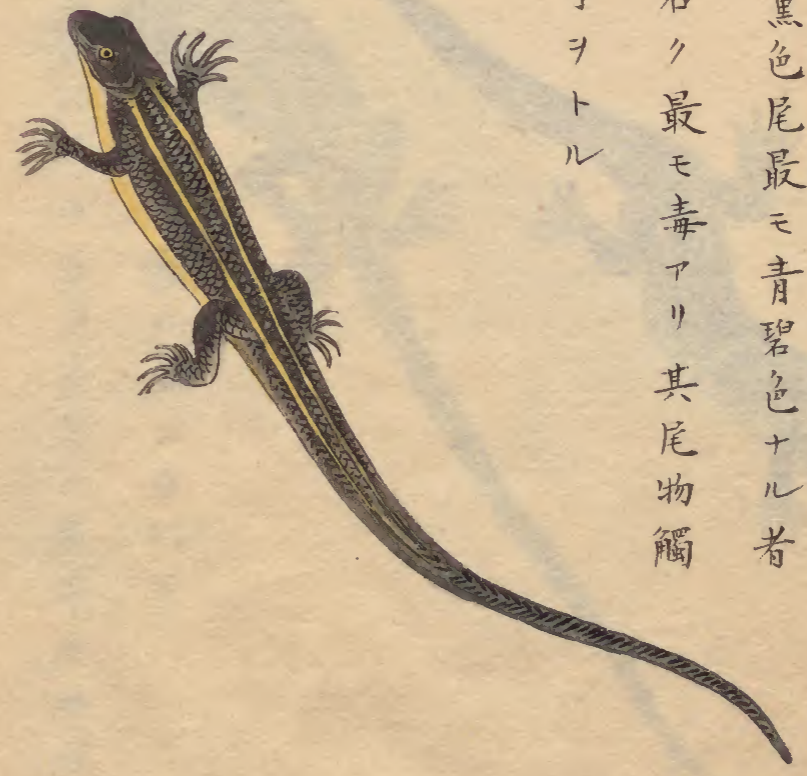 黒色尾最モ青碧色ナル者
ク最モ毒アリ其尾物觸
ヲトル